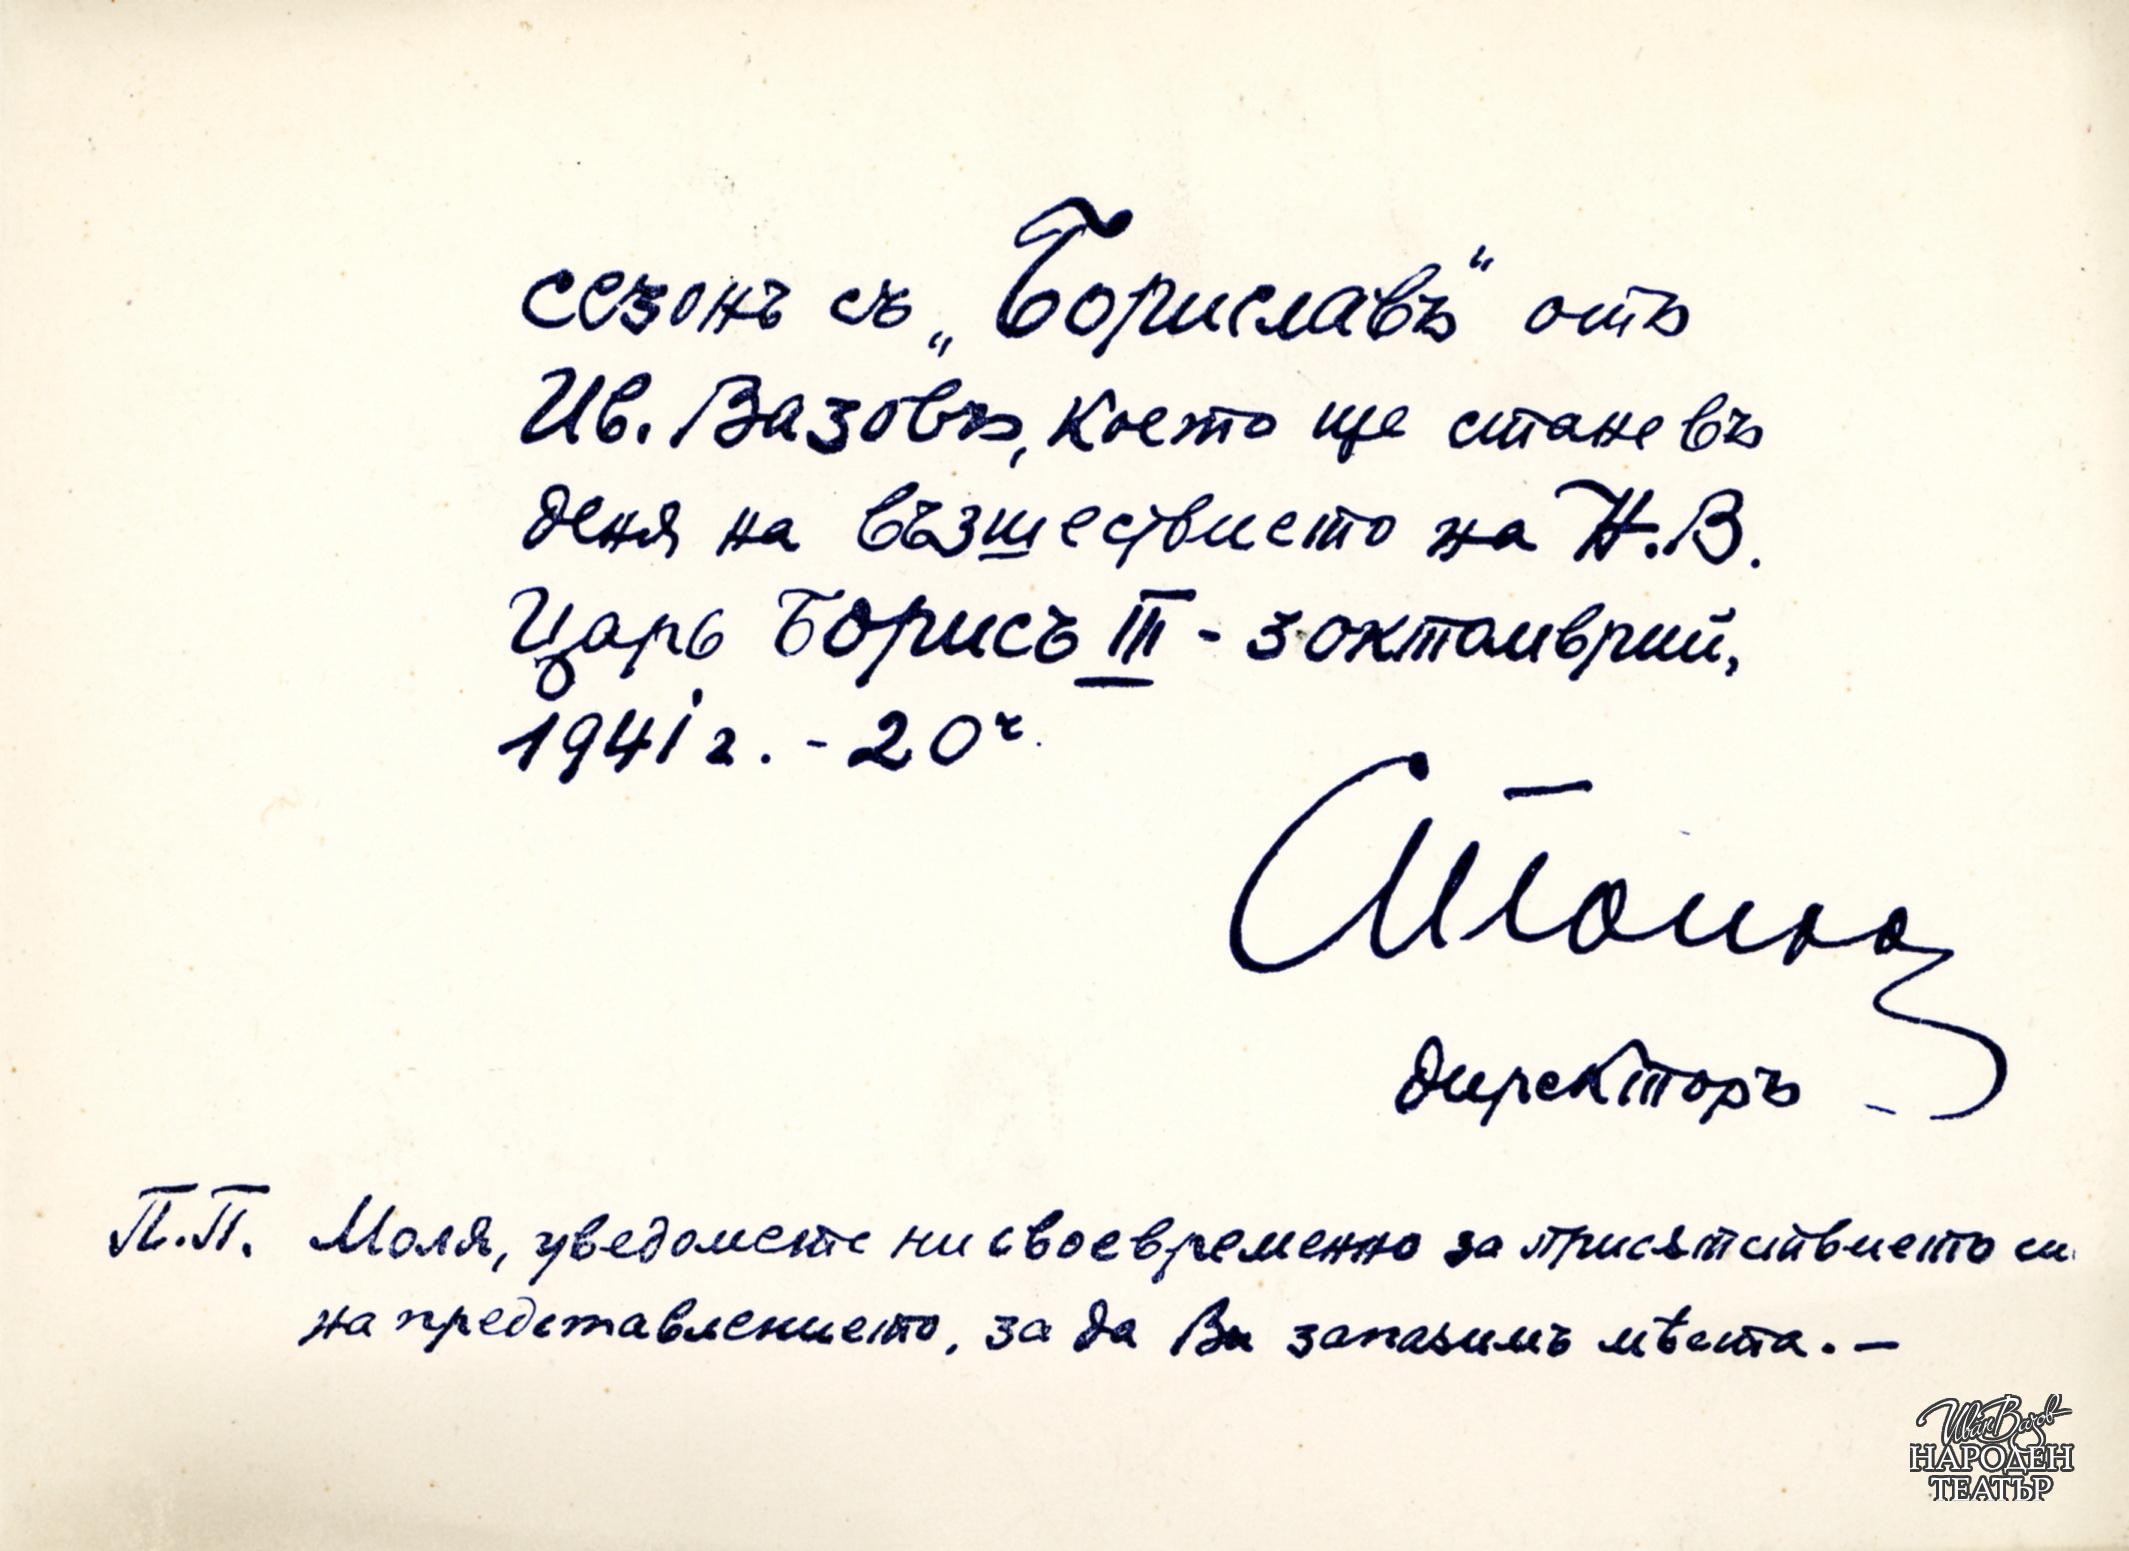 сезонъ съ „Бориславъ“ отъ
Ив. Вазовъ, което ще стане въ
деня на възшествието на Н.В.
Царь Борисъ III - 3 октомврий,
1941 г. - 20 ч.
директоръ
П.П. Моля, уведомете ни своевременно за присѫтствието си
на представлението, за да Ви запазимъ мѣста. —
Иван Вазов
НАРОДЕН
ТЕАТЪР